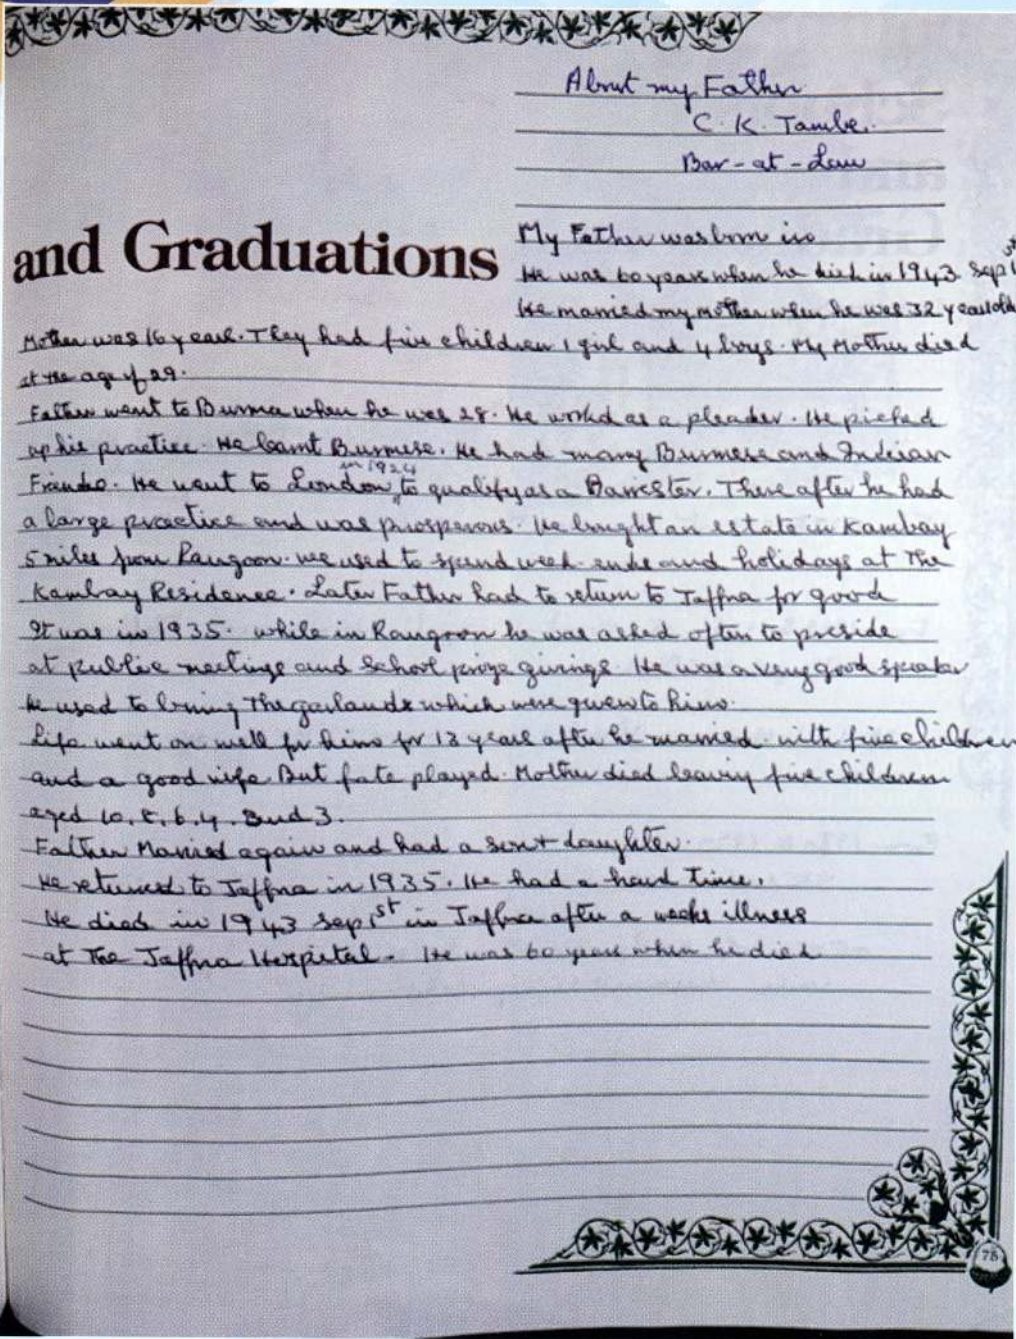 About my Father
C. K. Tambe.
Bar-at-Law
and Graduations
My Father was born in
He was 60 years when he died in 1943 Sep 1st
He married my mother when he was 32 years old
Mother was 16 years. They had five children 1 girl and 4 boys. My Mother died
at the age of 29.
Father went to Burma when he was 28. He workd as a pleader. He picked
up his practice. He learnt Burmese. He had many Burmese and Indian
Friends. He went to London in 1924 to qualify as a Barrister. There after he had
a large practice and was prosperous. He bought an estate in Kambay
5 miles from Rangoon. we used to spend week ends and holidays at The
Kambay Residence. Later Father had to return to Jaffna for good
It was in 1935. while in Rangoon he was asked often to preside
at public meetings and School prize givings. He was a very good speaker
He used to bring The garlands which were given to him.
Life went on well for him for 13 years after he married with five children
and a good wife. But fate played. Mother died leaving five children
aged 10, 8, 6, 4, and 3.
Father Married again and had a son + daughter.
He returned to Jaffna in 1935. He had a hard time.
He died in 1943 Sep 1st in Jaffna after a weeks illness
at The Jaffna Hospital. He was 60 years when he died
78